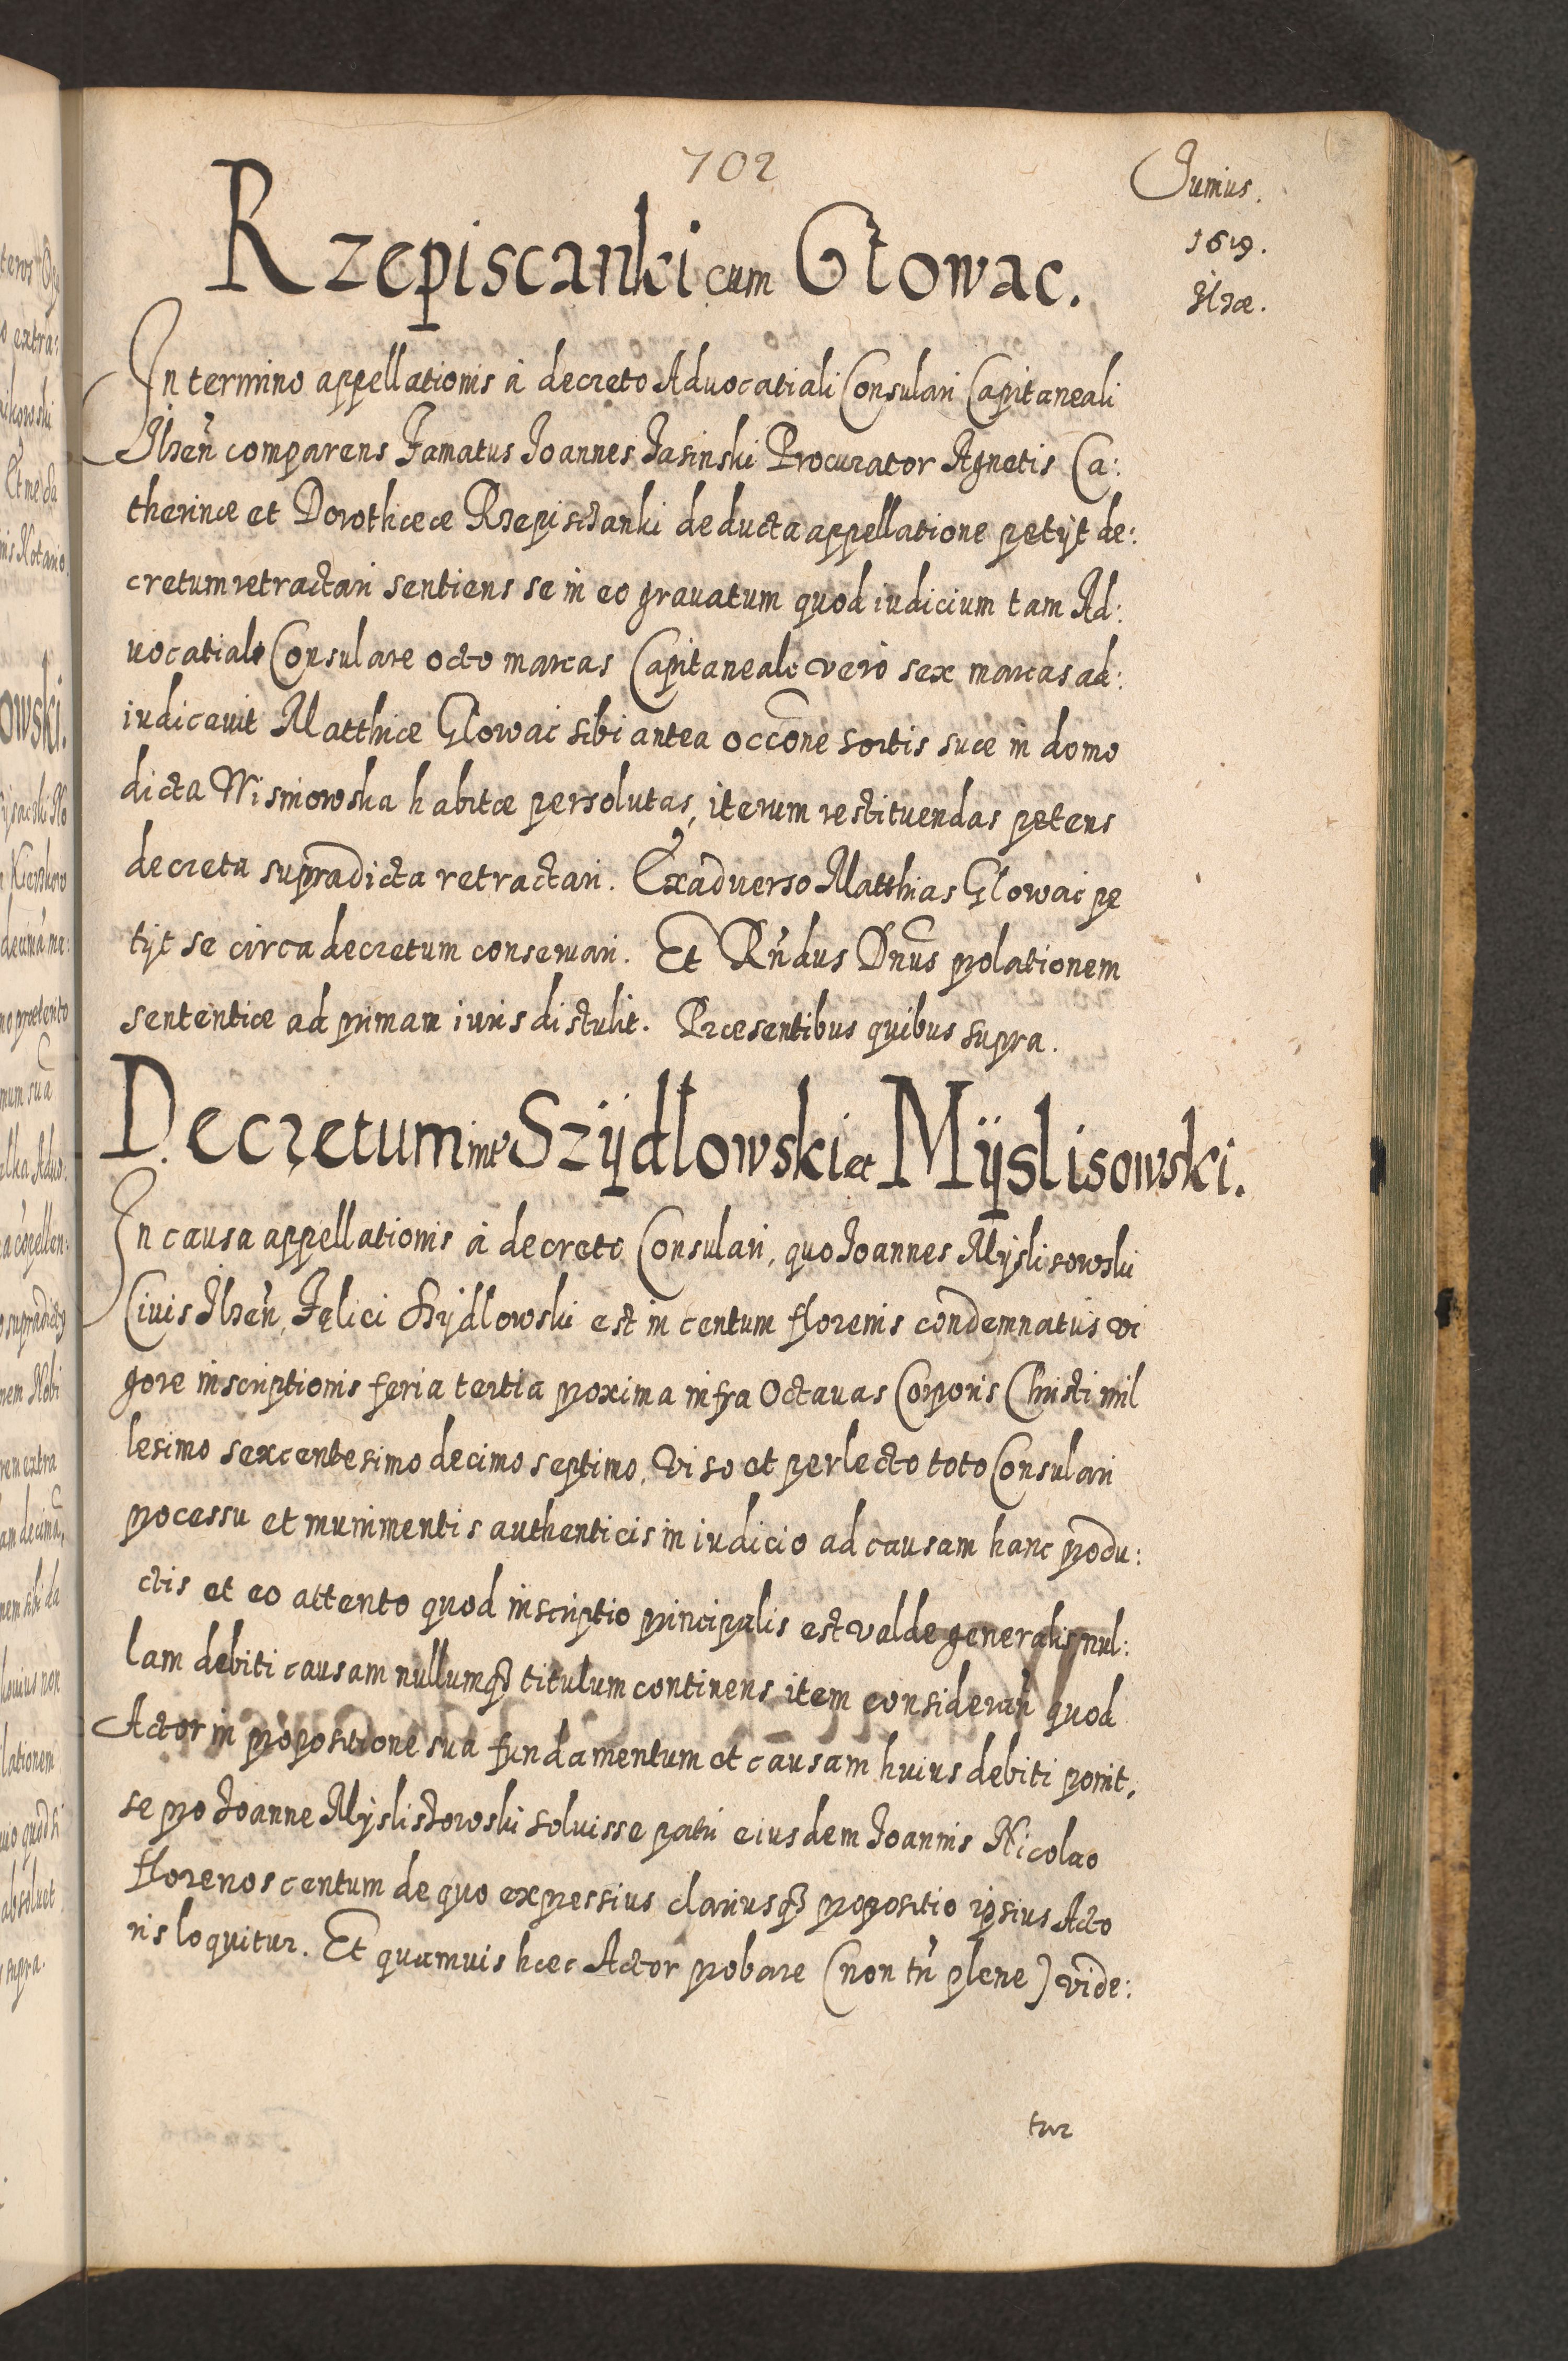 702
Junius.
1619.
Ilzæ.
Rzepiscanki cum Głowac.
In termino appellationis à decreto Aduocatiali Consulari Capitaneali
Ilzen̄ comparens Famatus Joannes Jasinski Procurator Agnetis Ca:
therinæ et Dorotheæ Rzepisczanki deducta appellatione petijt de:
cretum retractari sentiens se in eo grauatum quod iudicium tam Ad:
uocatiale Consulare octo marcas Capitaneale vero sex marcas ad:
iudicauit Matthiæ Glowac sibi antea occōne sortis suæ in domo
dicta Wisniowska habitæ persolutas, iterum restituendas petens
decreta supradicta retractari. Ex aduerso Matthias Glowac pe
tijt se circa decretum conseruari. Et Rn̄dus Dnus prolationem
sententiæ ad primam iuris distulit. Præsentibus quibus supra.
Decretum int Szÿdlowski et Mÿslisowski.
In causa appellationis à decreto Consulari, quo Joannes Mÿslisowski
Ciuis Ilzen̄, Felici Szÿdlowski est in centum florenis condemnatus vi
gore inscriptionis feria tertia proxima infra Octauas Corporis Christi mil
lesimo sexcentesimo decimo septimo, Viso et perlecto toto Consulari
processu et munimentis authenticis in iudicio ad causam hanc produ:
ctis et eo attento quod inscriptio principalis est valde generalis nul:
lam debiti causam nullumq₃ titulum continens item consideran̄ quod
Actor in propositione sua fundamentum et causam huius debiti ponit,
se pro Joanne Mÿslisowski soluisse patri eiusdem Joannis Nicolao
florenos centum de quo expressius clariusq₃ propositio ipsius Acto
ris loquitur. Et quamuis hæc Actor probare (non tn̄ plene) vide:
tur